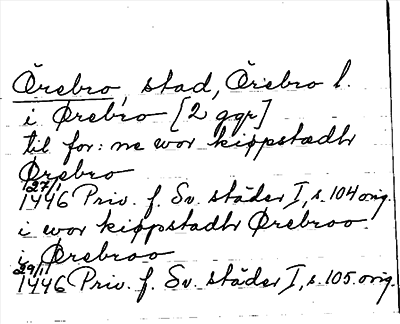 Örebro, stad, Örebro l.
i Ørebro [2 ggr]
til for: ne wor kiøpstædh
Ørebro
27/1
1446 Priv. f. Sv. städer I, s. 104 orig.
i wor kiøpstadh Ørebroo
i Ørebroo
29/11
1446 Priv. f. Sv. städer I, s. 105. orig.